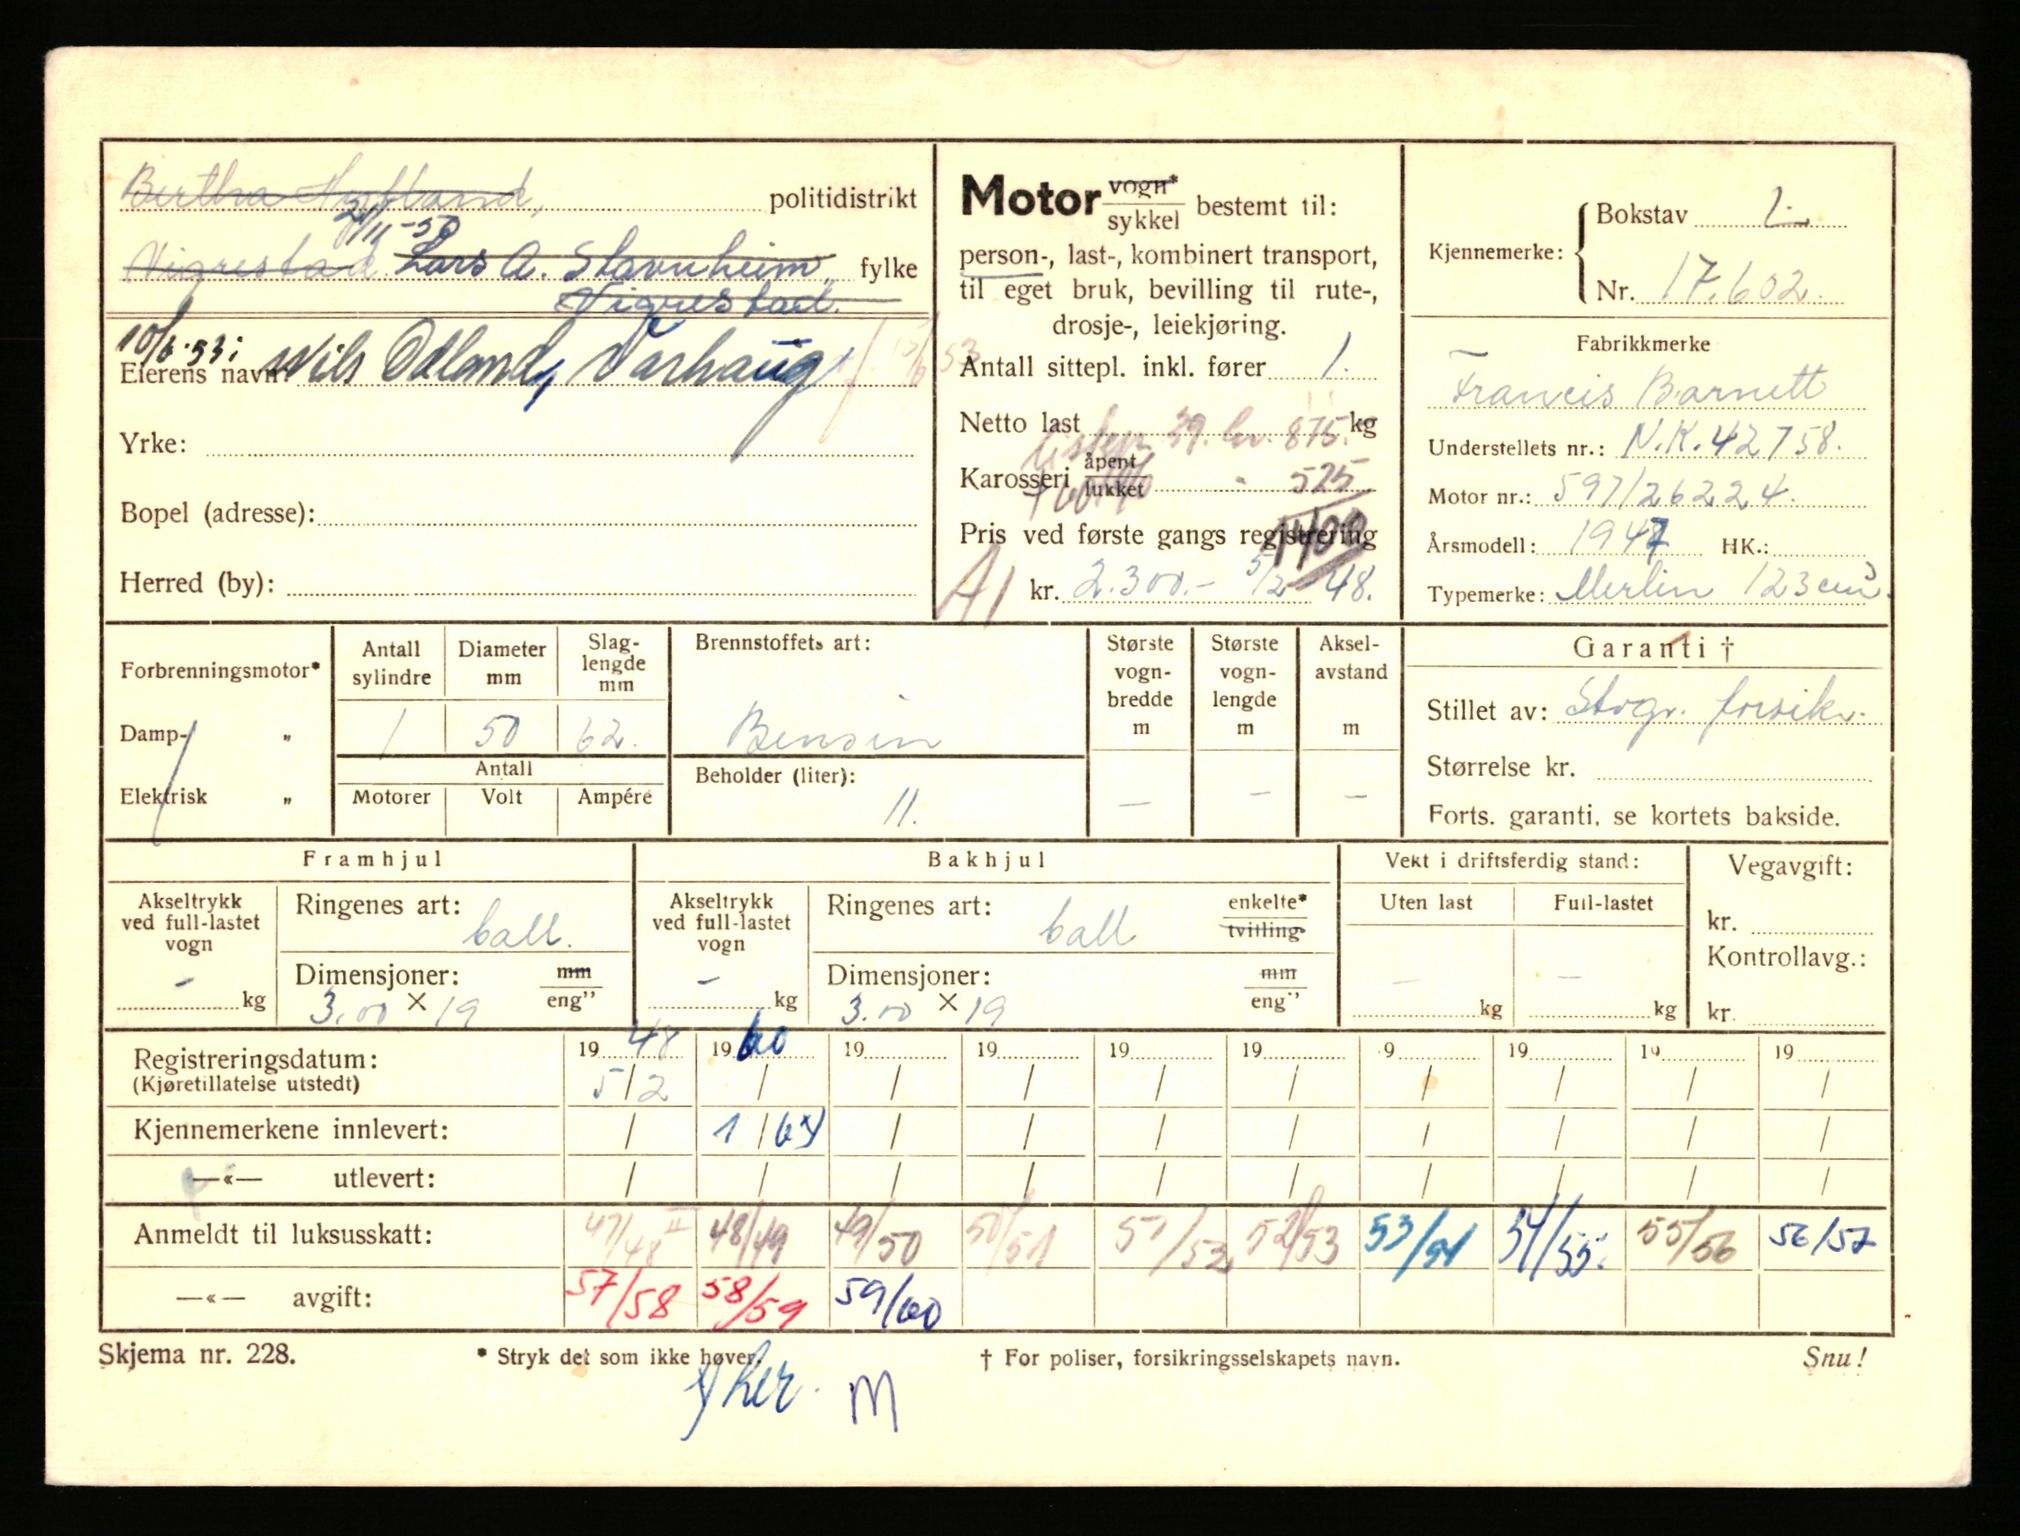 Bertha Hufland, politidistrikt
21/11-50
Vigrestad Lars A. Stavnheim, fylke
Vigrestad.
10/6-53: Nils Odland, Varhaug
Eierens navn:
Yrke:
Bopel (adresse):
Herred (by):
Motor vogn*
sykkel bestemt til:
person-, last-, kombinert transport,
til eget bruk, bevilling til rute-,
drosje-, leiekjøring.
Antall sittepl. inkl. fører 1.
Netto last 39. kr. 875.- kg
Karosseri åpent
lukket 525
1400
Pris ved første gangs registrering
A1 kr. 2.300.- 5/2 48.
Kjennemerke: Bokstav L
Nr. 17.602.
Fabrikkmerke
Francis Barnett
Understellets nr.: N.K.42758.
Motor nr.: 597/26224.
Årsmodell: 1947 HK.:
Typemerke: Merlin 123 cm³
Forbrenningsmotor*
Damp- „
Elektrisk „
Antall sylindre
Diameter mm
Slaglengde mm
1 50 62.
Antall
Motorer Volt Ampére
Brennstoffets art:
Bensin
Beholder (liter):
11.
Største vognbredde m
Største vognlengde m
Akselavstand m
— — —
Garanti †
Stillet av: Stvgr. forsik.
Størrelse kr.
Forts. garanti, se kortets bakside.
Framhjul
Akseltrykk ved full-lastet vogn
- kg
Ringenes art: ball.
Dimensjoner: mm
3.00 × 19 eng"
Bakhjul
Akseltrykk ved full-lastet vogn
- kg
Ringenes art: ball enkelte*
tvilling
Dimensjoner: mm
3.00 × 19 eng"
Vekt i driftsferdig stand:
Uten last Full-lastet
— —
kg kg
Vegavgift:
kr.
Kontrollavg.:
kr.
Registreringsdatum: 1948 1960 19 19 19 19 19 19 19 19
(Kjøretillatelse utstedt) 5/2 / / / / / / / / /
Kjennemerkene innlevert: / 1/6 x) / / / / / / / /
—«— utlevert: / / / / / / / / / /
Anmeldt til luksusskatt: 47/48 II 48/49 49/50 50/51 51/52 52/53 53/54 54/55. 55/56 56/57
—«— avgift: 57/58 58/59 59/60
Skjema nr. 228. * Stryk det som ikke høver. † For poliser, forsikringsselskapets navn. Snu!
x) her. M